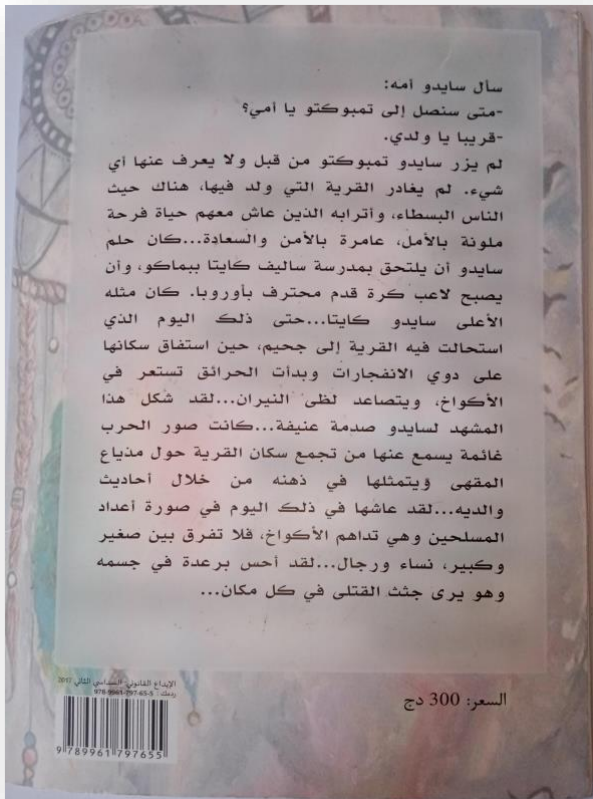 سأل سايدو أمه:
-متى سنصل إلى تمبوكتو يا أمي؟
-قريبا يا ولدي.
لم يزر سايدو تمبوكتو من قبل ولا يعرف عنها أي
شيء. لم يغادر القرية التي ولد فيها، هناك حيث
الناس البسطاء، وأترابه الذين عاش معهم حياة فرحة
ملونة بالأمل، عامرة بالأمن والسعادة...كان حلم
سايدو أن يلتحق بمدرسة ساليف كايتا ببماكو، وأن
يصبح لاعب كرة قدم محترف بأوروبا. كان مثله
الأعلى سايدو كايتا...حتى ذلك اليوم الذي
استحالت فيه القرية إلى جحيم، حين استفاق سكانها
على دوي الانفجارات وبدأت الحرائق تستعر في
الأكواخ، ويتصاعد لظى النيران...لقد شكل هذا
المشهد لسايدو صدمة عنيفة...كانت صور الحرب
غائمة يسمع عنها من تجمع سكان القرية حول مذياع
المقهى ويتمثلها في ذهنه من خلال أحاديث
والديه...لقد عاشها في ذلك اليوم في صورة أعداد
المسلحين وهي تداهم الأكواخ، فلا تفرق بين صغير
وكبير، نساء ورجال...لقد أحس برعدة في جسمه
وهو يرى جثث القتلى في كل مكان...
الإيداع القانوني: السداسي الثاني 2017
ردمك: 978-9961-797-65-5
السعر: 300 دج
9 789961 797655